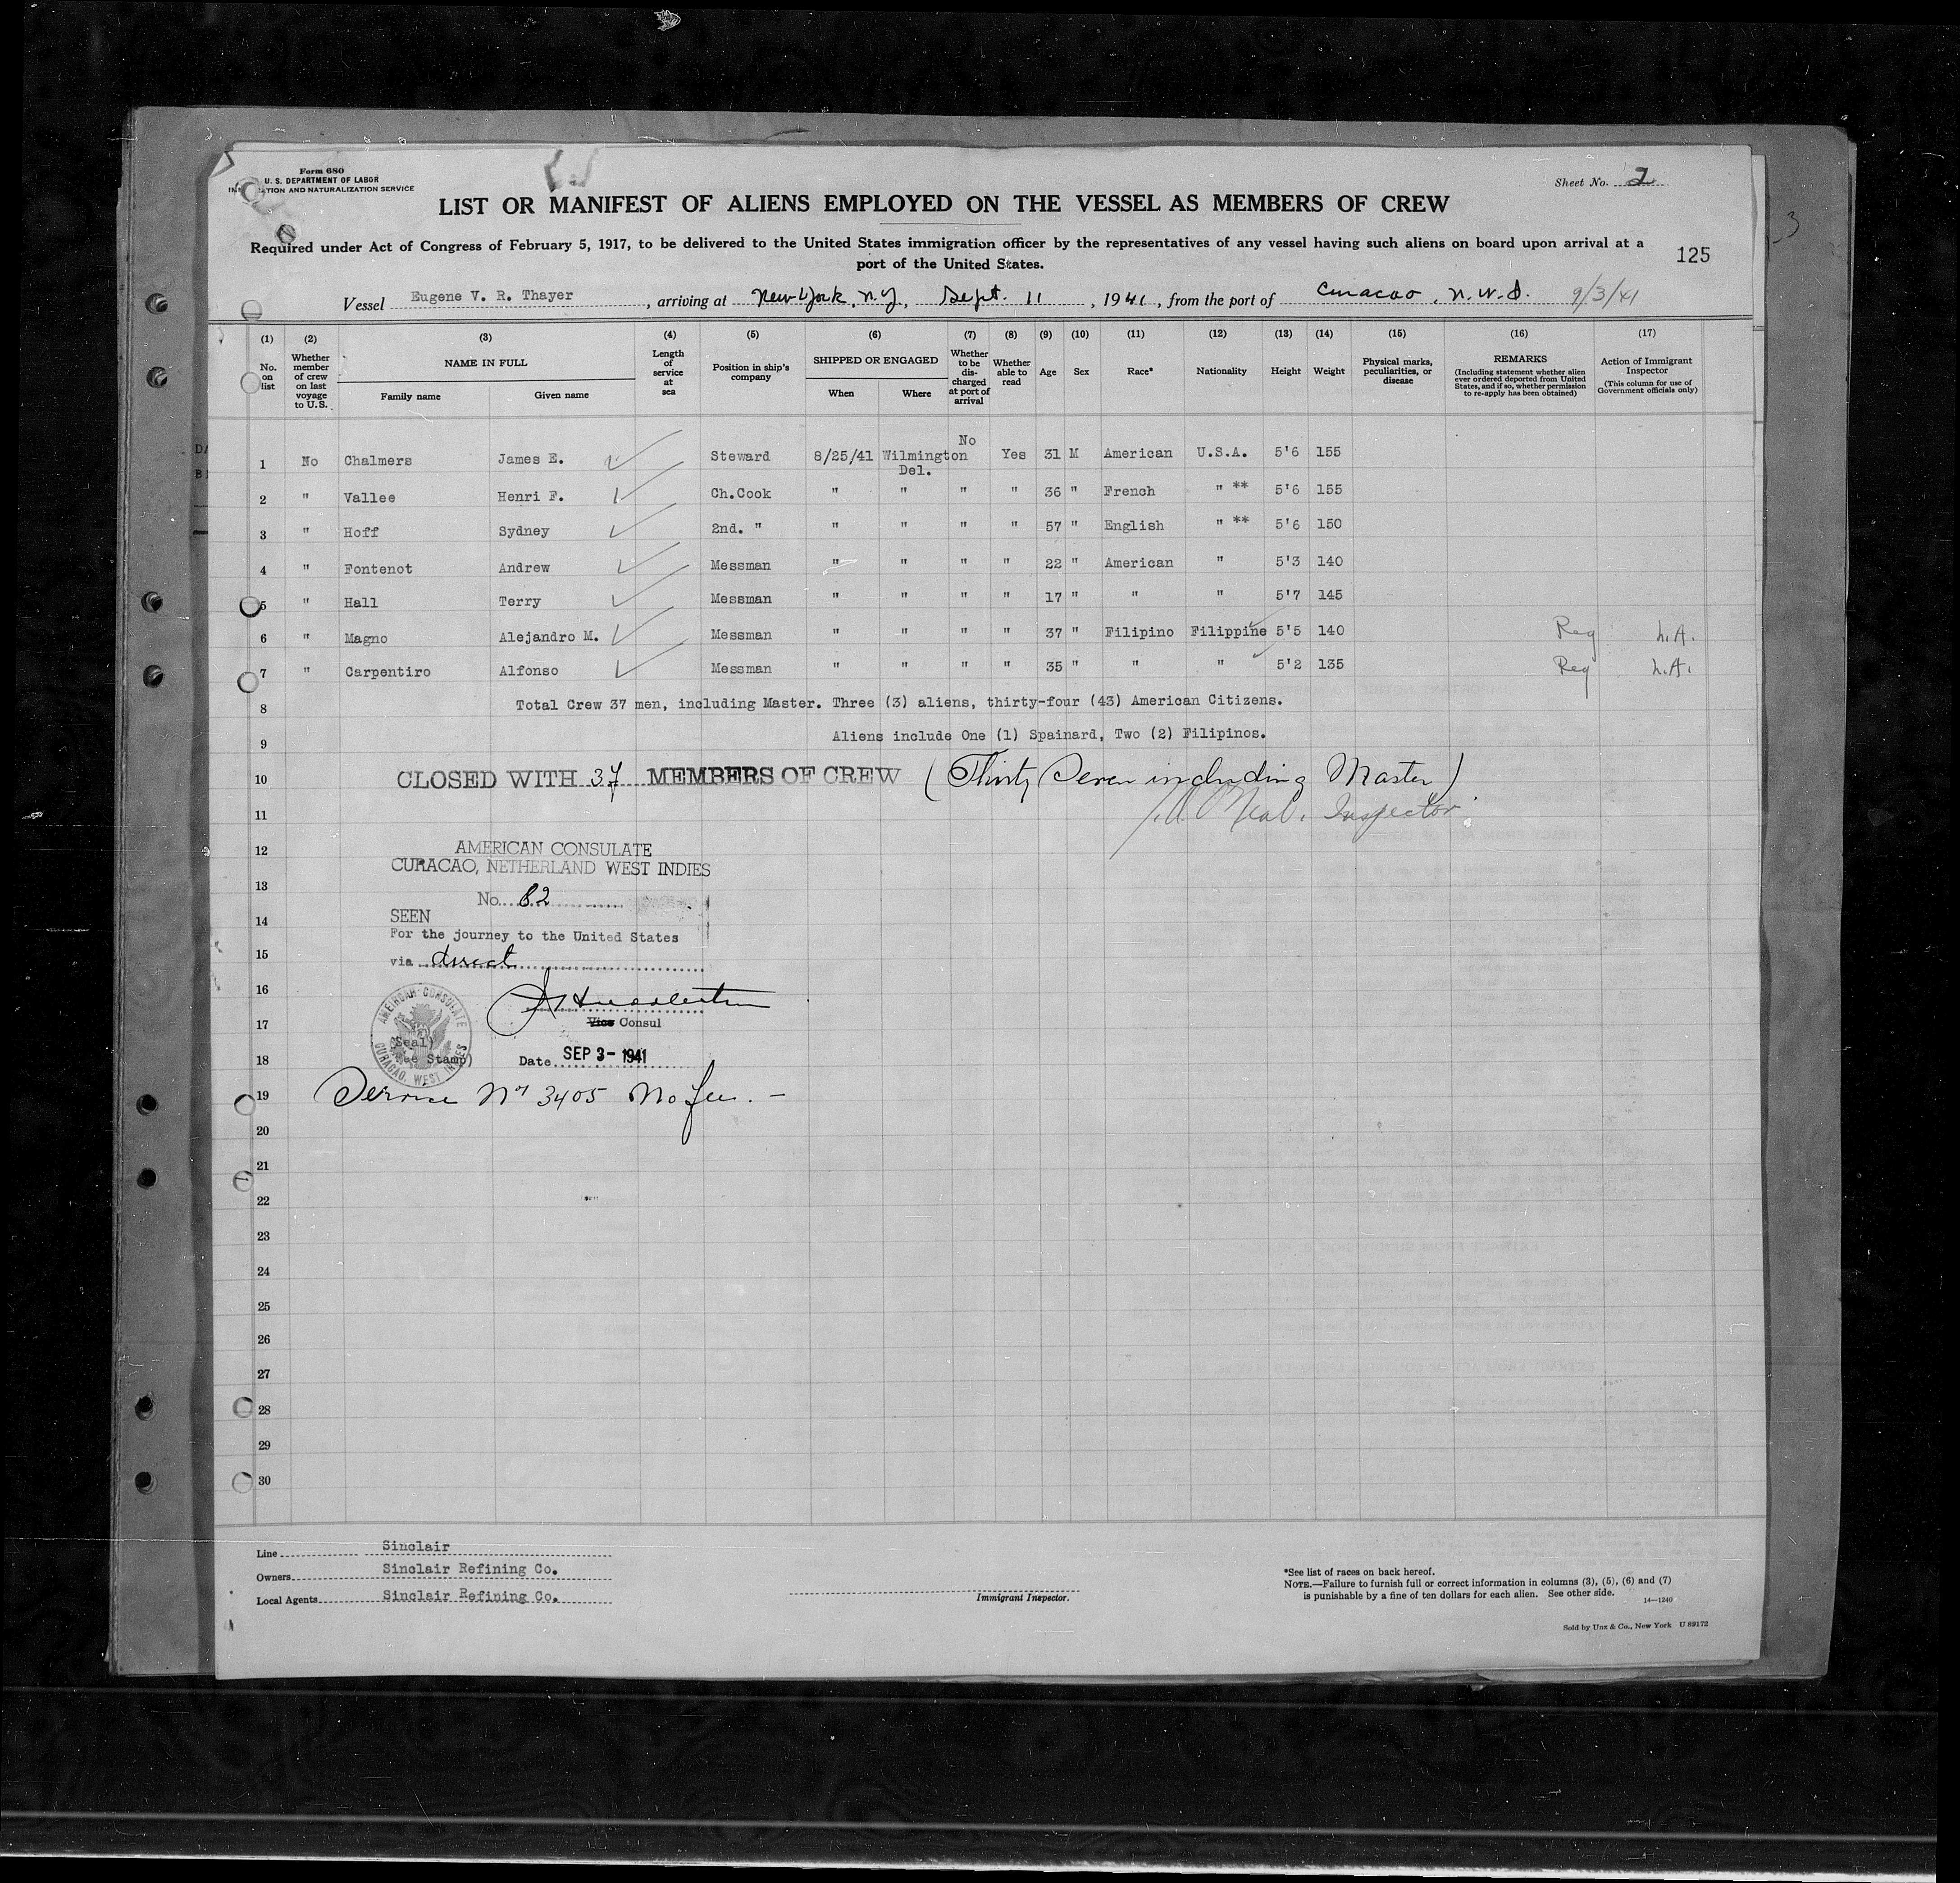 Form 680
U. S. DEPARTMENT OF LABOR
IMMIGRATION AND NATURALIZATION SERVICE
Sheet No. 2
LIST OR MANIFEST OF ALIENS EMPLOYED ON THE VESSEL AS MEMBERS OF CREW
Required under Act of Congress of February 5, 1917, to be delivered to the United States immigration officer by the representatives of any vessel having such aliens on board upon arrival at a
port of the United States.
125
Vessel Eugene V. R. Thayer, arriving at New York, N.Y., Sept. 11, 1941, from the port of Curacao, N.W.I. 9/3/41
(1) No. on list
(2) Whether member of crew on last voyage to U.S.
(3) NAME IN FULL Family name Given name
(4) Length of service at sea
(5) Position in ship's company
(6) SHIPPED OR ENGAGED When Where
(7) Whether to be discharged at port of arrival
(8) Whether able to read
(9) Age
(10) Sex
(11) Race*
(12) Nationality
(13) Height
(14) Weight
(15) Physical marks, peculiarities, or disease
(16) REMARKS (Including statement whether alien ever ordered deported from United States, and if so, whether permission to re-apply has been obtained)
(17) Action of Immigrant Inspector (This column for use of Government officials only)
1 No Chalmers James E. Steward 8/25/41 Wilmington Del. No Yes 31 M American U.S.A. 5'6 155
2 " Vallee Henri F. Ch.Cook " " " " 36 " French " ** 5'6 155
3 " Hoff Sydney 2nd. " " " " " 57 " English " ** 5'6 150
4 " Fontenot Andrew Messman " " " " 22 " American " 5'3 140
5 " Hall Terry Messman " " " " 17 " " " 5'7 145
6 " Magno Alejandro M. Messman " " " " 37 " Filipino Filippine 5'5 140 Reg L.A.
7 " Carpentiro Alfonso Messman " " " " 35 " " " 5'2 135 Reg L.A.
8 Total Crew 37 men, including Master. Three (3) aliens, thirty-four (43) American Citizens.
9 Aliens include One (1) Spainard, Two (2) Filipinos.
10 CLOSED WITH 37 MEMBERS OF CREW (Thirty Seven including Master)
11 Inspector
12 AMERICAN CONSULATE
CURACAO, NETHERLAND WEST INDIES
13 No. 82
14 SEEN
For the journey to the United States
15 via direct
16
17 Vice Consul
AMERICAN CONSULATE
CURACAO, WEST INDIES
(Seal)
Stamp)
18 Date SEP 3- 1941
19 Service No 3405 No fee. -
20
21
22
23
24
25
26
27
28
29
30
Line Sinclair
Owners Sinclair Refining Co.
Local Agents Sinclair Refining Co.
Immigrant Inspector.
*See list of races on back hereof.
NOTE.—Failure to furnish full or correct information in columns (3), (5), (6) and (7)
is punishable by a fine of ten dollars for each alien. See other side.
14—1240
Sold by Unz & Co., New York U 89172